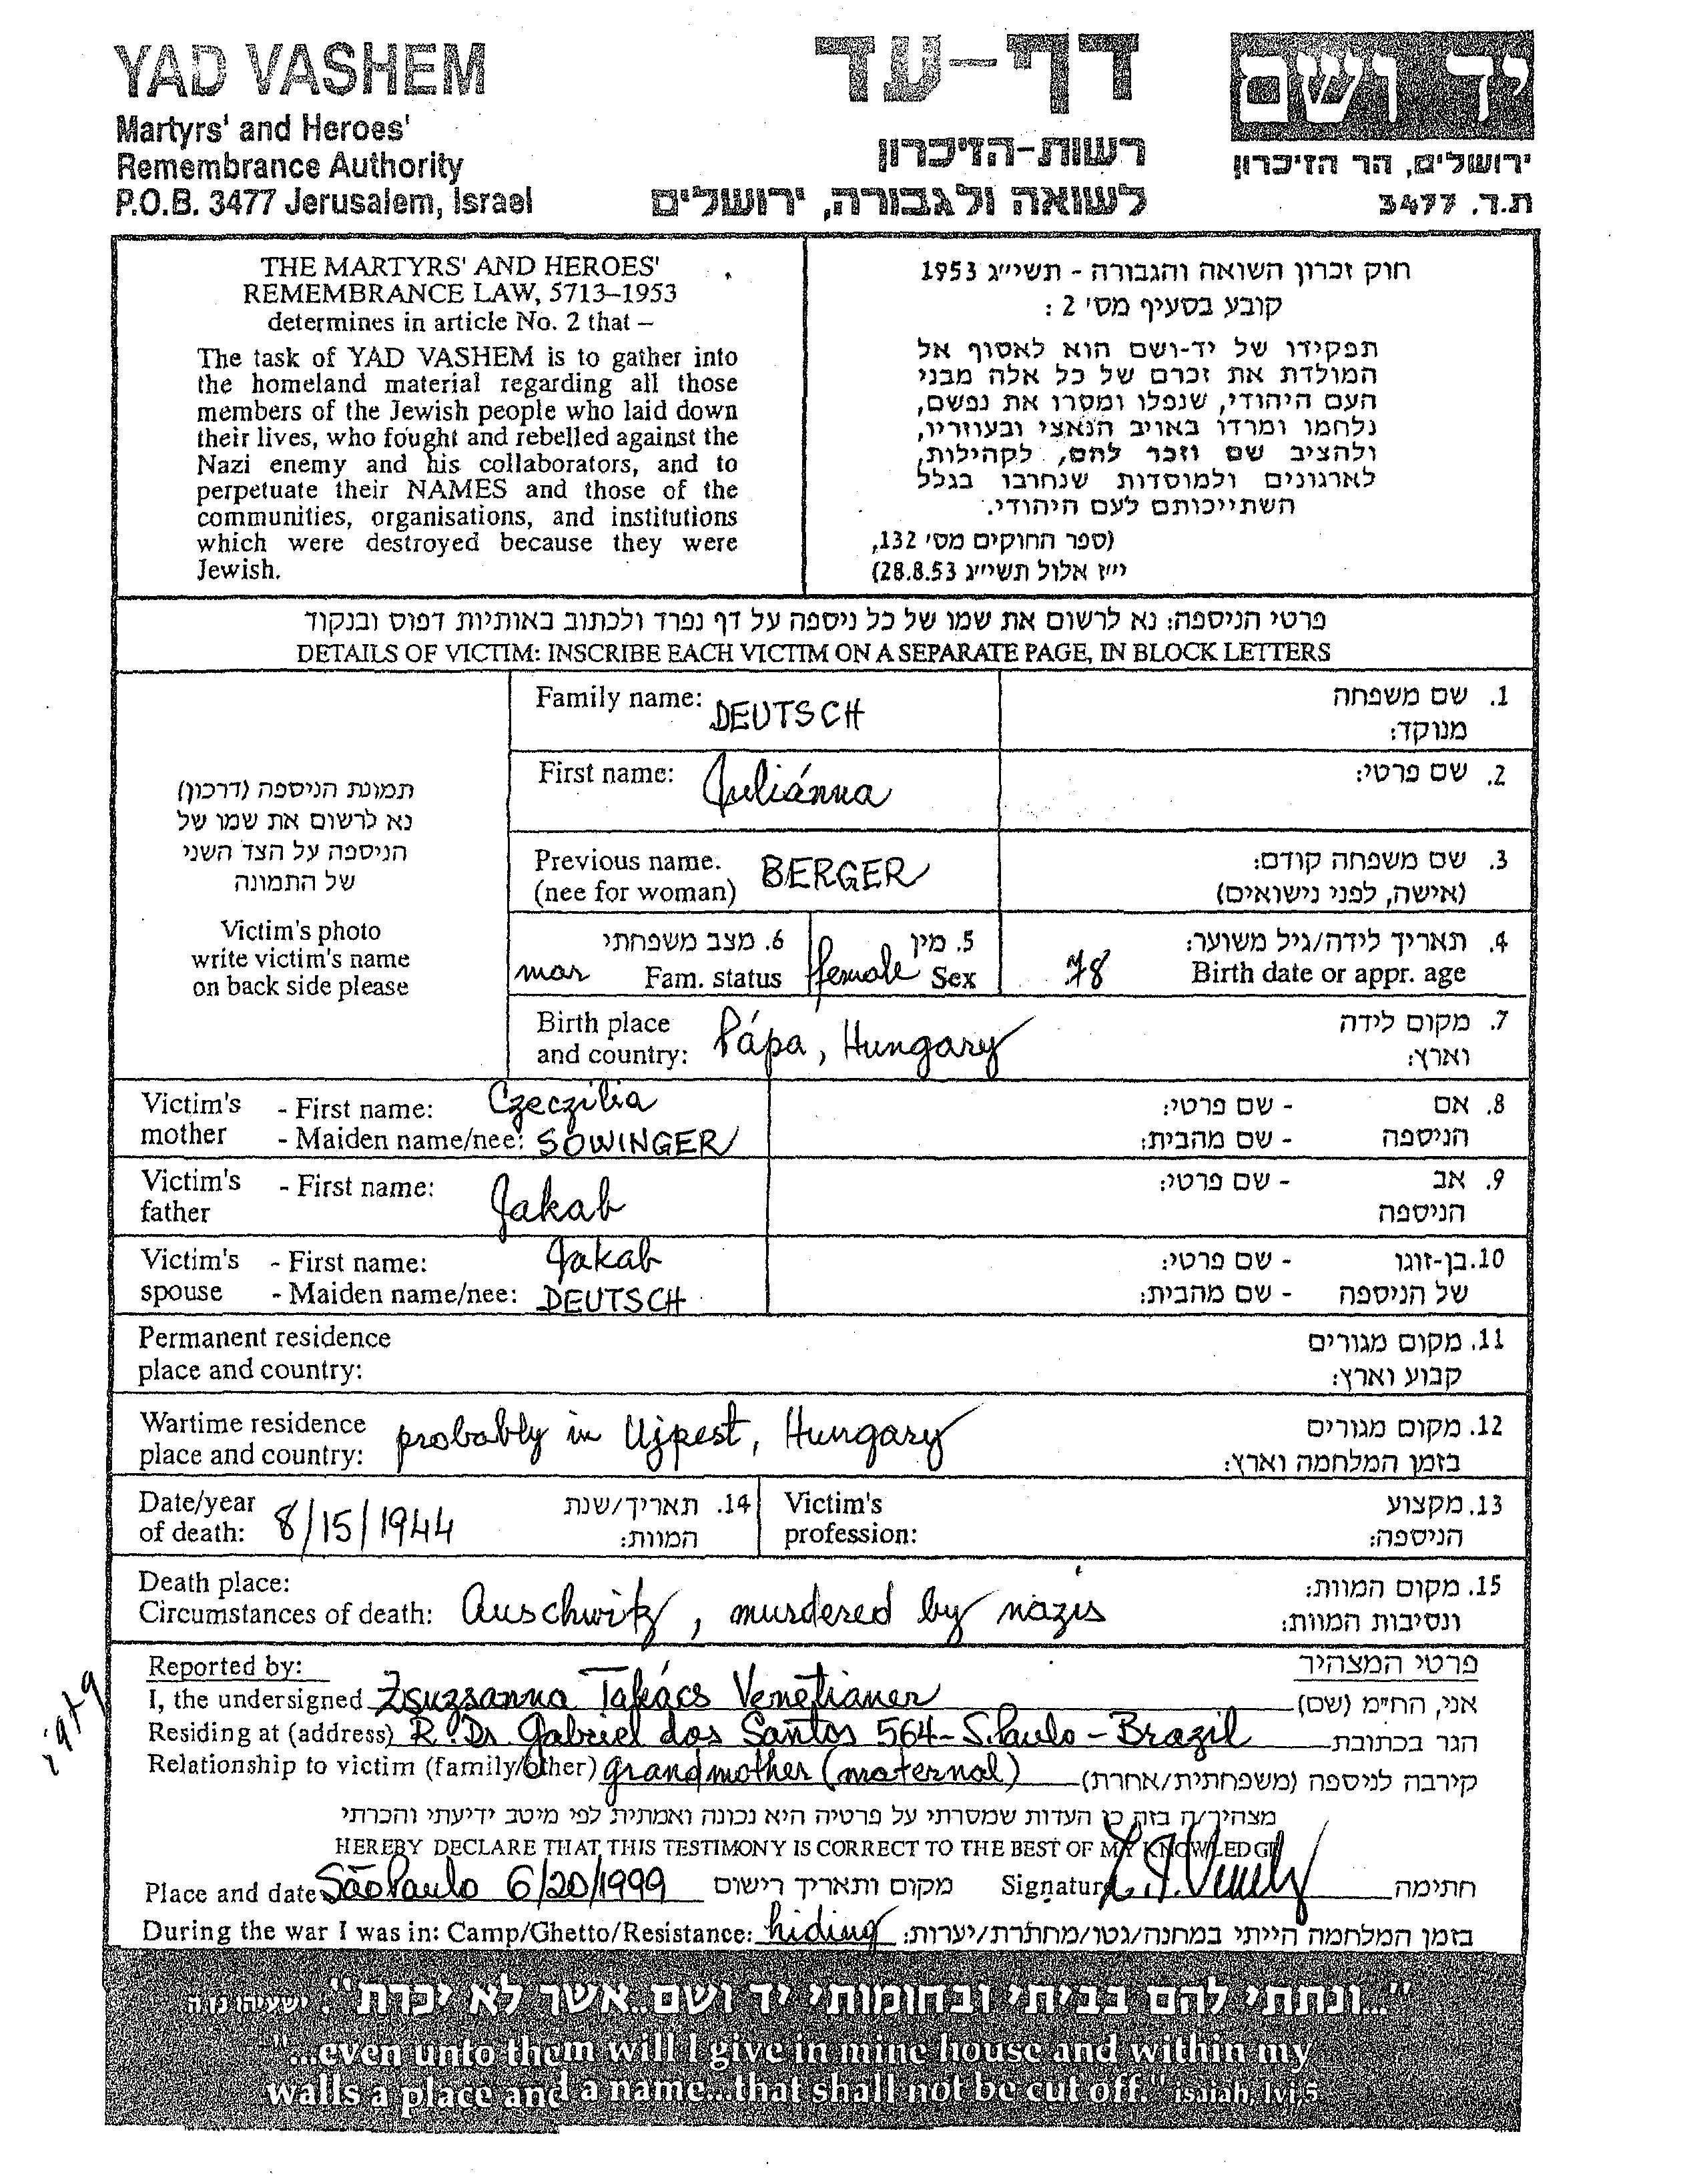 YAD VASHEM
Martyrs' and Heroes'
Remembrance Authority
P.O.B. 3477 Jerusalem, Israel
דף-עד
רשות-הזיכרון
לשואה ולגבורה, ירושלים
יד ושם
ירושלים, הר הזיכרון
ת.ד. 3477
THE MARTYRS' AND HEROES'
REMEMBRANCE LAW, 5713–1953
determines in article No. 2 that –
The task of YAD VASHEM is to gather into
the homeland material regarding all those
members of the Jewish people who laid down
their lives, who fought and rebelled against the
Nazi enemy and his collaborators, and to
perpetuate their NAMES and those of the
communities, organisations, and institutions
which were destroyed because they were
Jewish.
חוק זכרון השואה והגבורה - תשי״ג 1953
קובע בסעיף מס' 2 :
תפקידו של יד-ושם הוא לאסוף אל
המולדת את זכרם של כל אלה מבני
העם היהודי, שנפלו ומסרו את נפשם,
נלחמו ומרדו באויב הנאצי ובעוזריו,
ולהציב שם וזכר להם, לקהילות,
לארגונים ולמוסדות שנחרבו בגלל
השתייכותם לעם היהודי.
(ספר החוקים מס' 132,
י״ז אלול תשי״ג 28.8.53)
פרטי הניספה: נא לרשום את שמו של כל ניספה על דף נפרד ולכתוב באותיות דפוס ובנקוד
DETAILS OF VICTIM: INSCRIBE EACH VICTIM ON A SEPARATE PAGE, IN BLOCK LETTERS
תמונת הניספה (דרכון)
נא לרשום את שמו של
הניספה על הצד השני
של התמונה
Victim's photo
write victim's name
on back side please
Family name: DEUTSCH 1. שם משפחה
מנוקד:
First name: Juliánna 2. שם פרטי:
Previous name. BERGER 3. שם משפחה קודם:
(nee for woman) (אישה, לפני נישואים)
6. מצב משפחתי 5. מין 4. תאריך לידה/גיל משוער:
mar Fam. status female Sex 78 Birth date or appr. age
Birth place Pápa, Hungary 7. מקום לידה
and country: וארץ:
Victim's - First name: Czeczilia 8. אם - שם פרטי:
mother - Maiden name/nee: SOWINGER הניספה - שם מהבית:
Victim's - First name: Jakab 9. אב - שם פרטי:
father הניספה
Victim's - First name: Jakab 10. בן-זוגו - שם פרטי:
spouse - Maiden name/nee: DEUTSCH של הניספה - שם מהבית:
Permanent residence 11. מקום מגורים
place and country: קבוע וארץ:
Wartime residence probably in Ujpest, Hungary 12. מקום מגורים
place and country: בזמן המלחמה וארץ:
Date/year 8/15/1944 14. תאריך/שנת Victim's 13. מקצוע
of death: המוות: profession: הניספה:
Death place: 15. מקום המוות:
Circumstances of death: Auschwitz, murdered by nazis ונסיבות המוות:
Reported by: פרטי המצהיר
I, the undersigned Zsuzsanna Takács Venetianer אני, הח״מ (שם)
Residing at (address) R. Dr. Gabriel dos Santos 564 - S. Paulo - Brazil הגר בכתובת
Relationship to victim (family/other) grandmother (maternal) קירבה לניספה (משפחתית/אחרת)
מצהיר/ה בזה כי העדות שמסרתי על פרטיה היא נכונה ואמתית לפי מיטב ידיעתי והכרתי
HEREBY DECLARE THAT THIS TESTIMONY IS CORRECT TO THE BEST OF MY KNOWLEDGE
Place and date São Paulo 6/20/1999 מקום ותאריך רישום Signature חתימה
During the war I was in: Camp/Ghetto/Resistance: hiding בזמן המלחמה הייתי במחנה/גטו/מחתרת/יערות:
"...ונתתי להם בביתי ובחומותי יד ושם..אשר לא יכרת". ישעיהו נו ה
"...even unto them will I give in mine house and within my
walls a place and a name...that shall not be cut off." isaiah, lvi,5